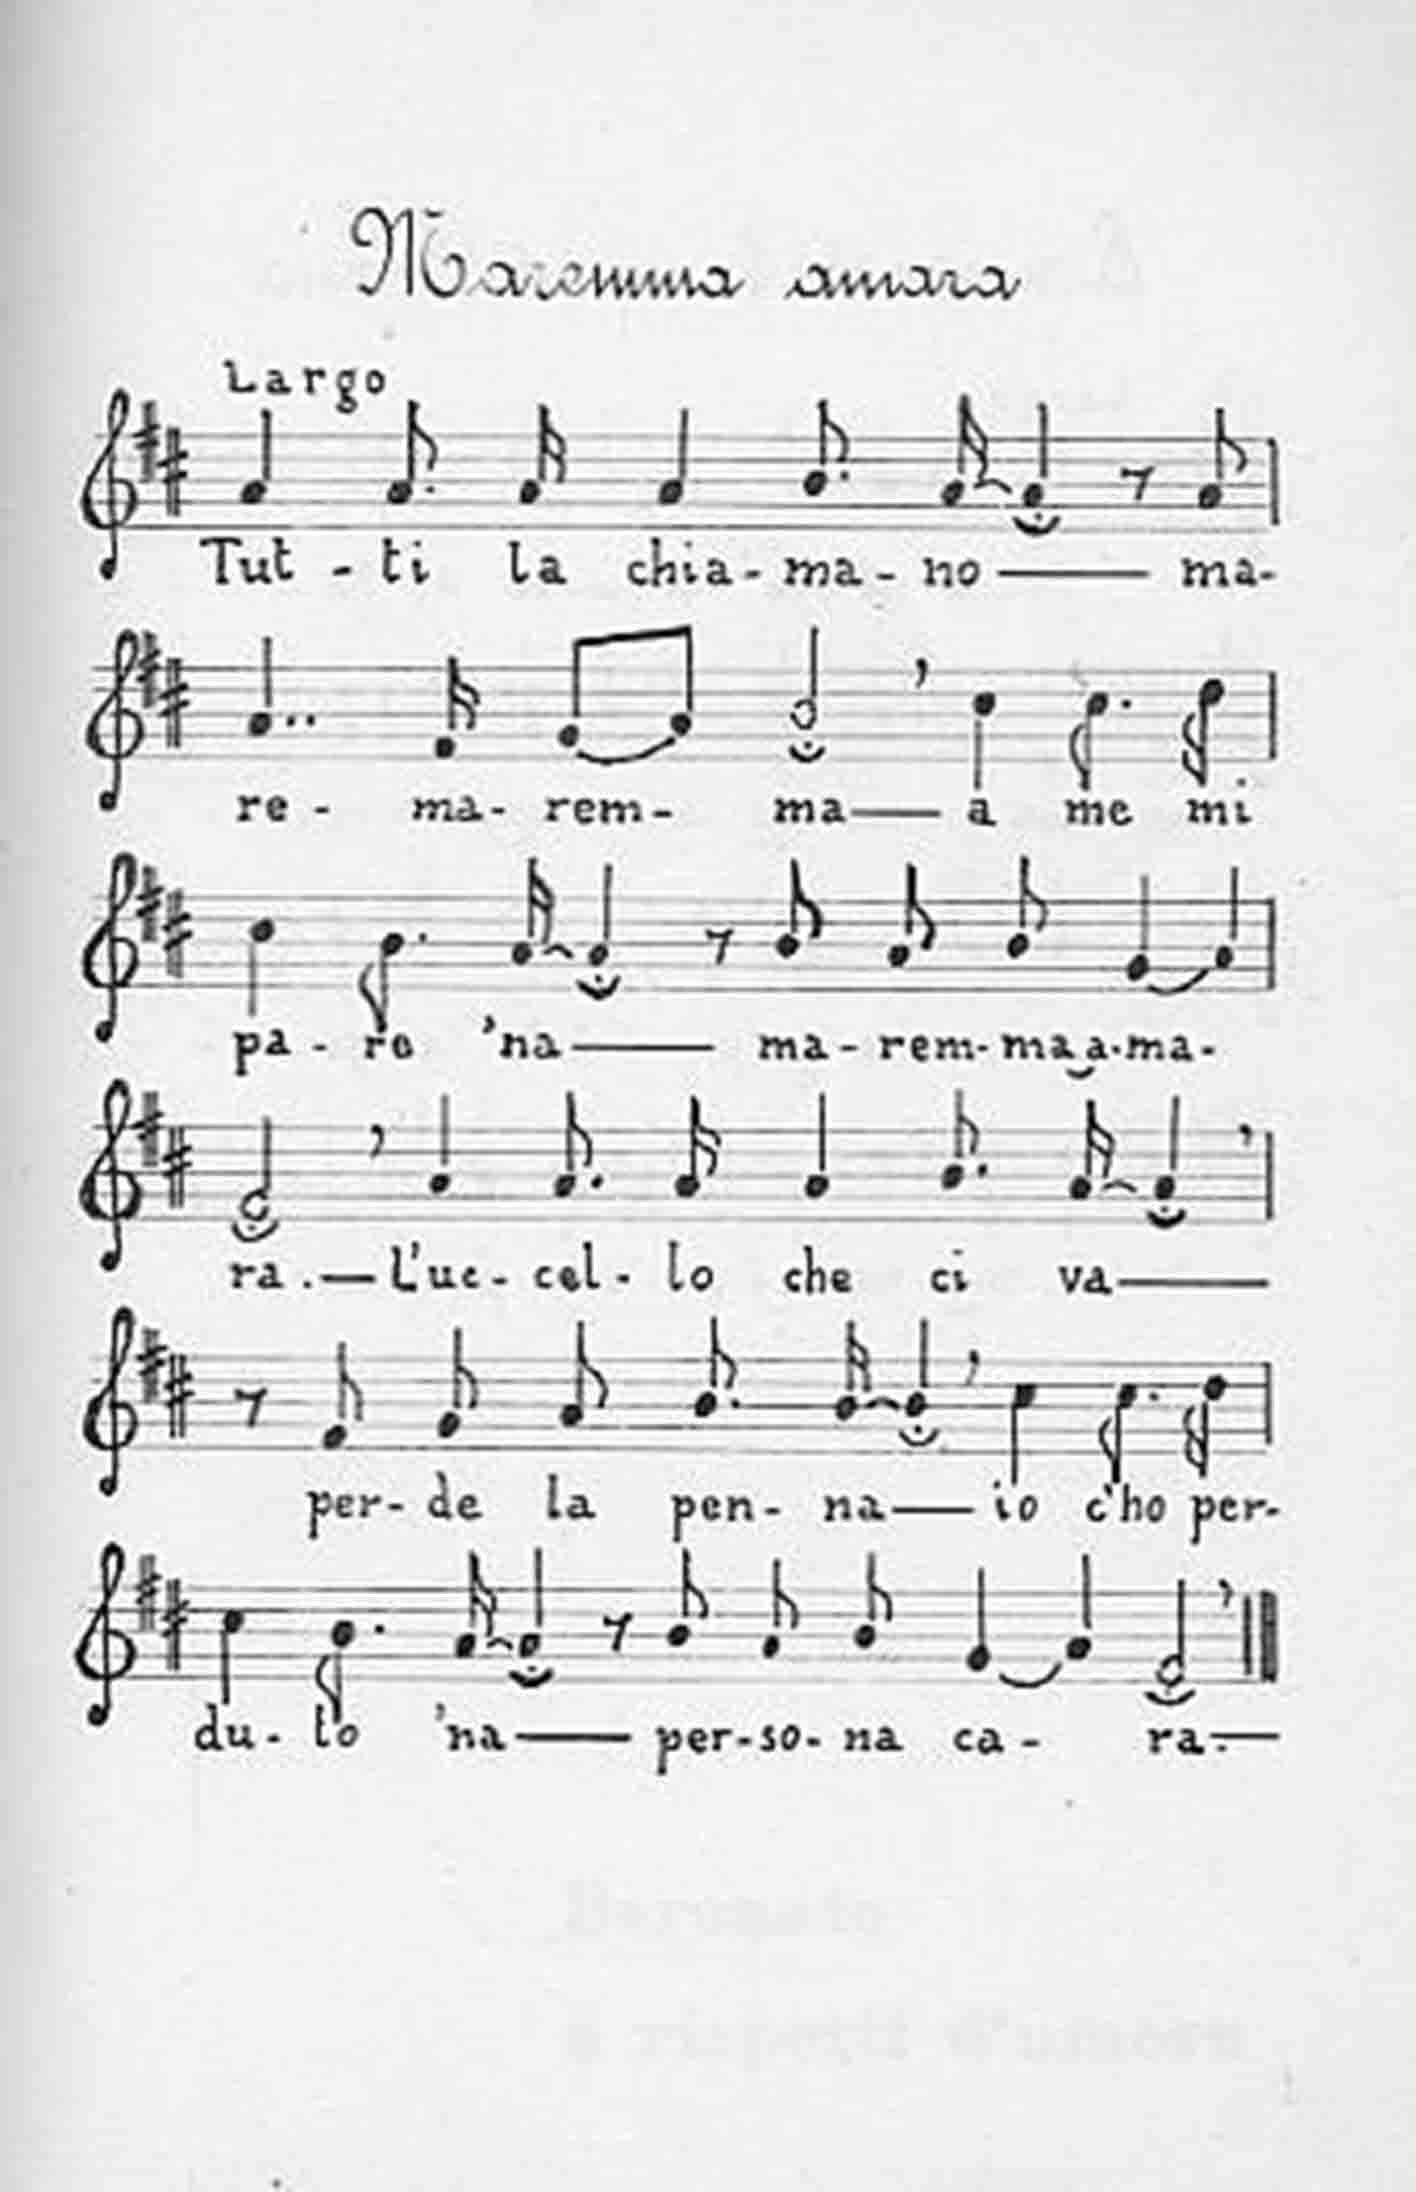 Maremma amara
Largo
Tut - ti la chia - ma - no — ma-
re - ma - rem - ma — a me mi
pa - re 'na — ma - rem - ma a - ma -
ra. — L'uc - cel - lo che ci va —
per - de la pen - na — io c'ho per-
du - to 'na — per - so - na ca - ra. —